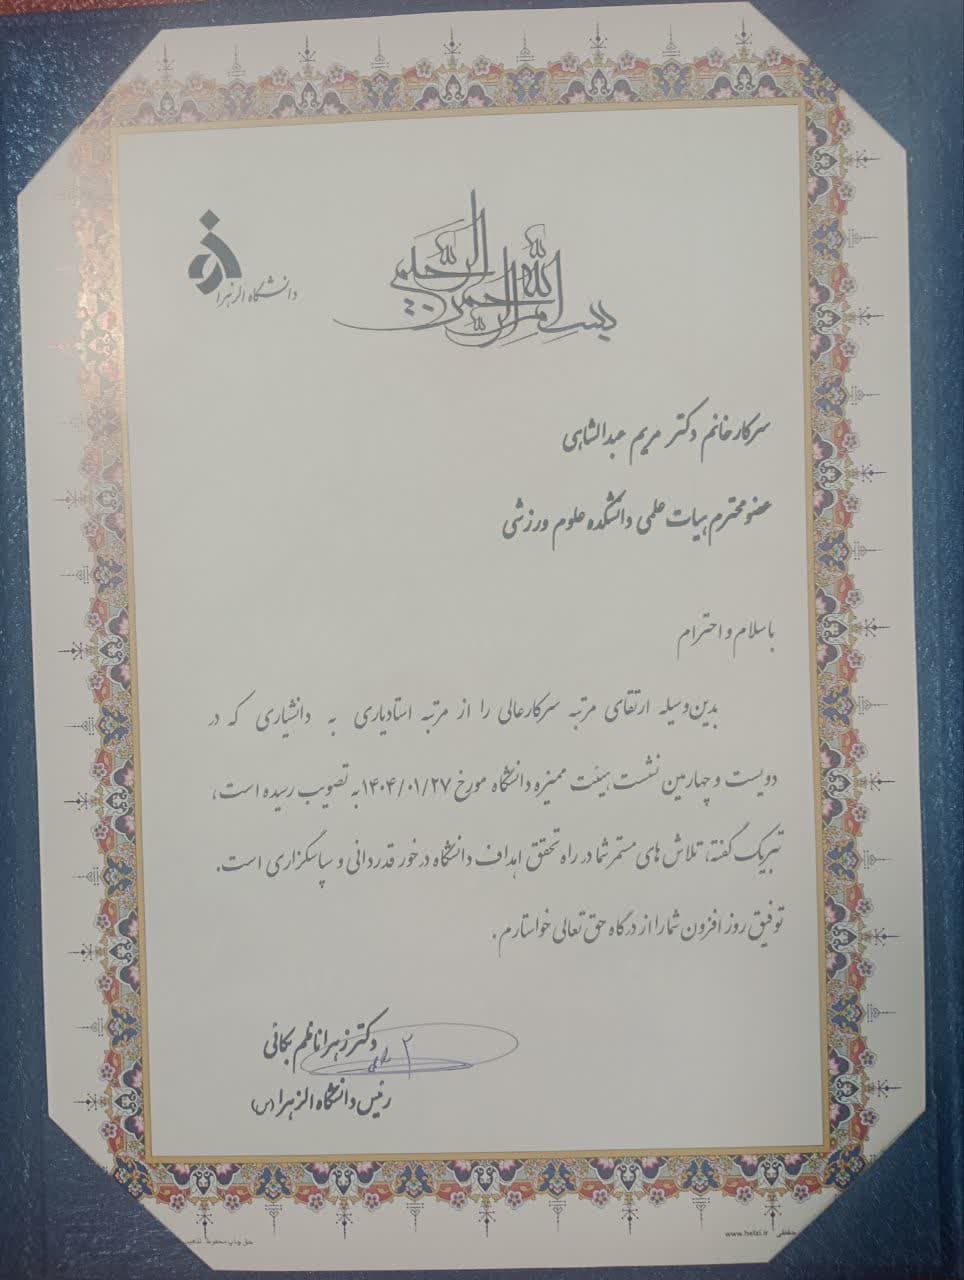 بسم الله الرحمن الرحیم
دانشگاه الزهرا
سرکار خانم دکتر مریم عبدالشاهی
عضو محترم هیات علمی دانشکده علوم ورزشی
با سلام و احترام
بدین‌وسیله ارتقای مرتبه سرکارعالی را از مرتبه استادیاری به دانشیاری که در
دویست و چهارمین نشست هیئت ممیزه دانشگاه مورخ ۱۴۰۴/۰۱/۲۷ به تصویب رسیده است،
تبریک گفته، تلاش های مستمر شما در راه تحقق اهداف دانشگاه درخور قدردانی و سپاسگزاری است.
توفیق روز افزون شما را از درگاه حق تعالی خواستارم.
دکتر زهرا ناظم بکائی
رئیس دانشگاه الزهرا (س)
حق چاپ محفوظ
www.helzi.ir